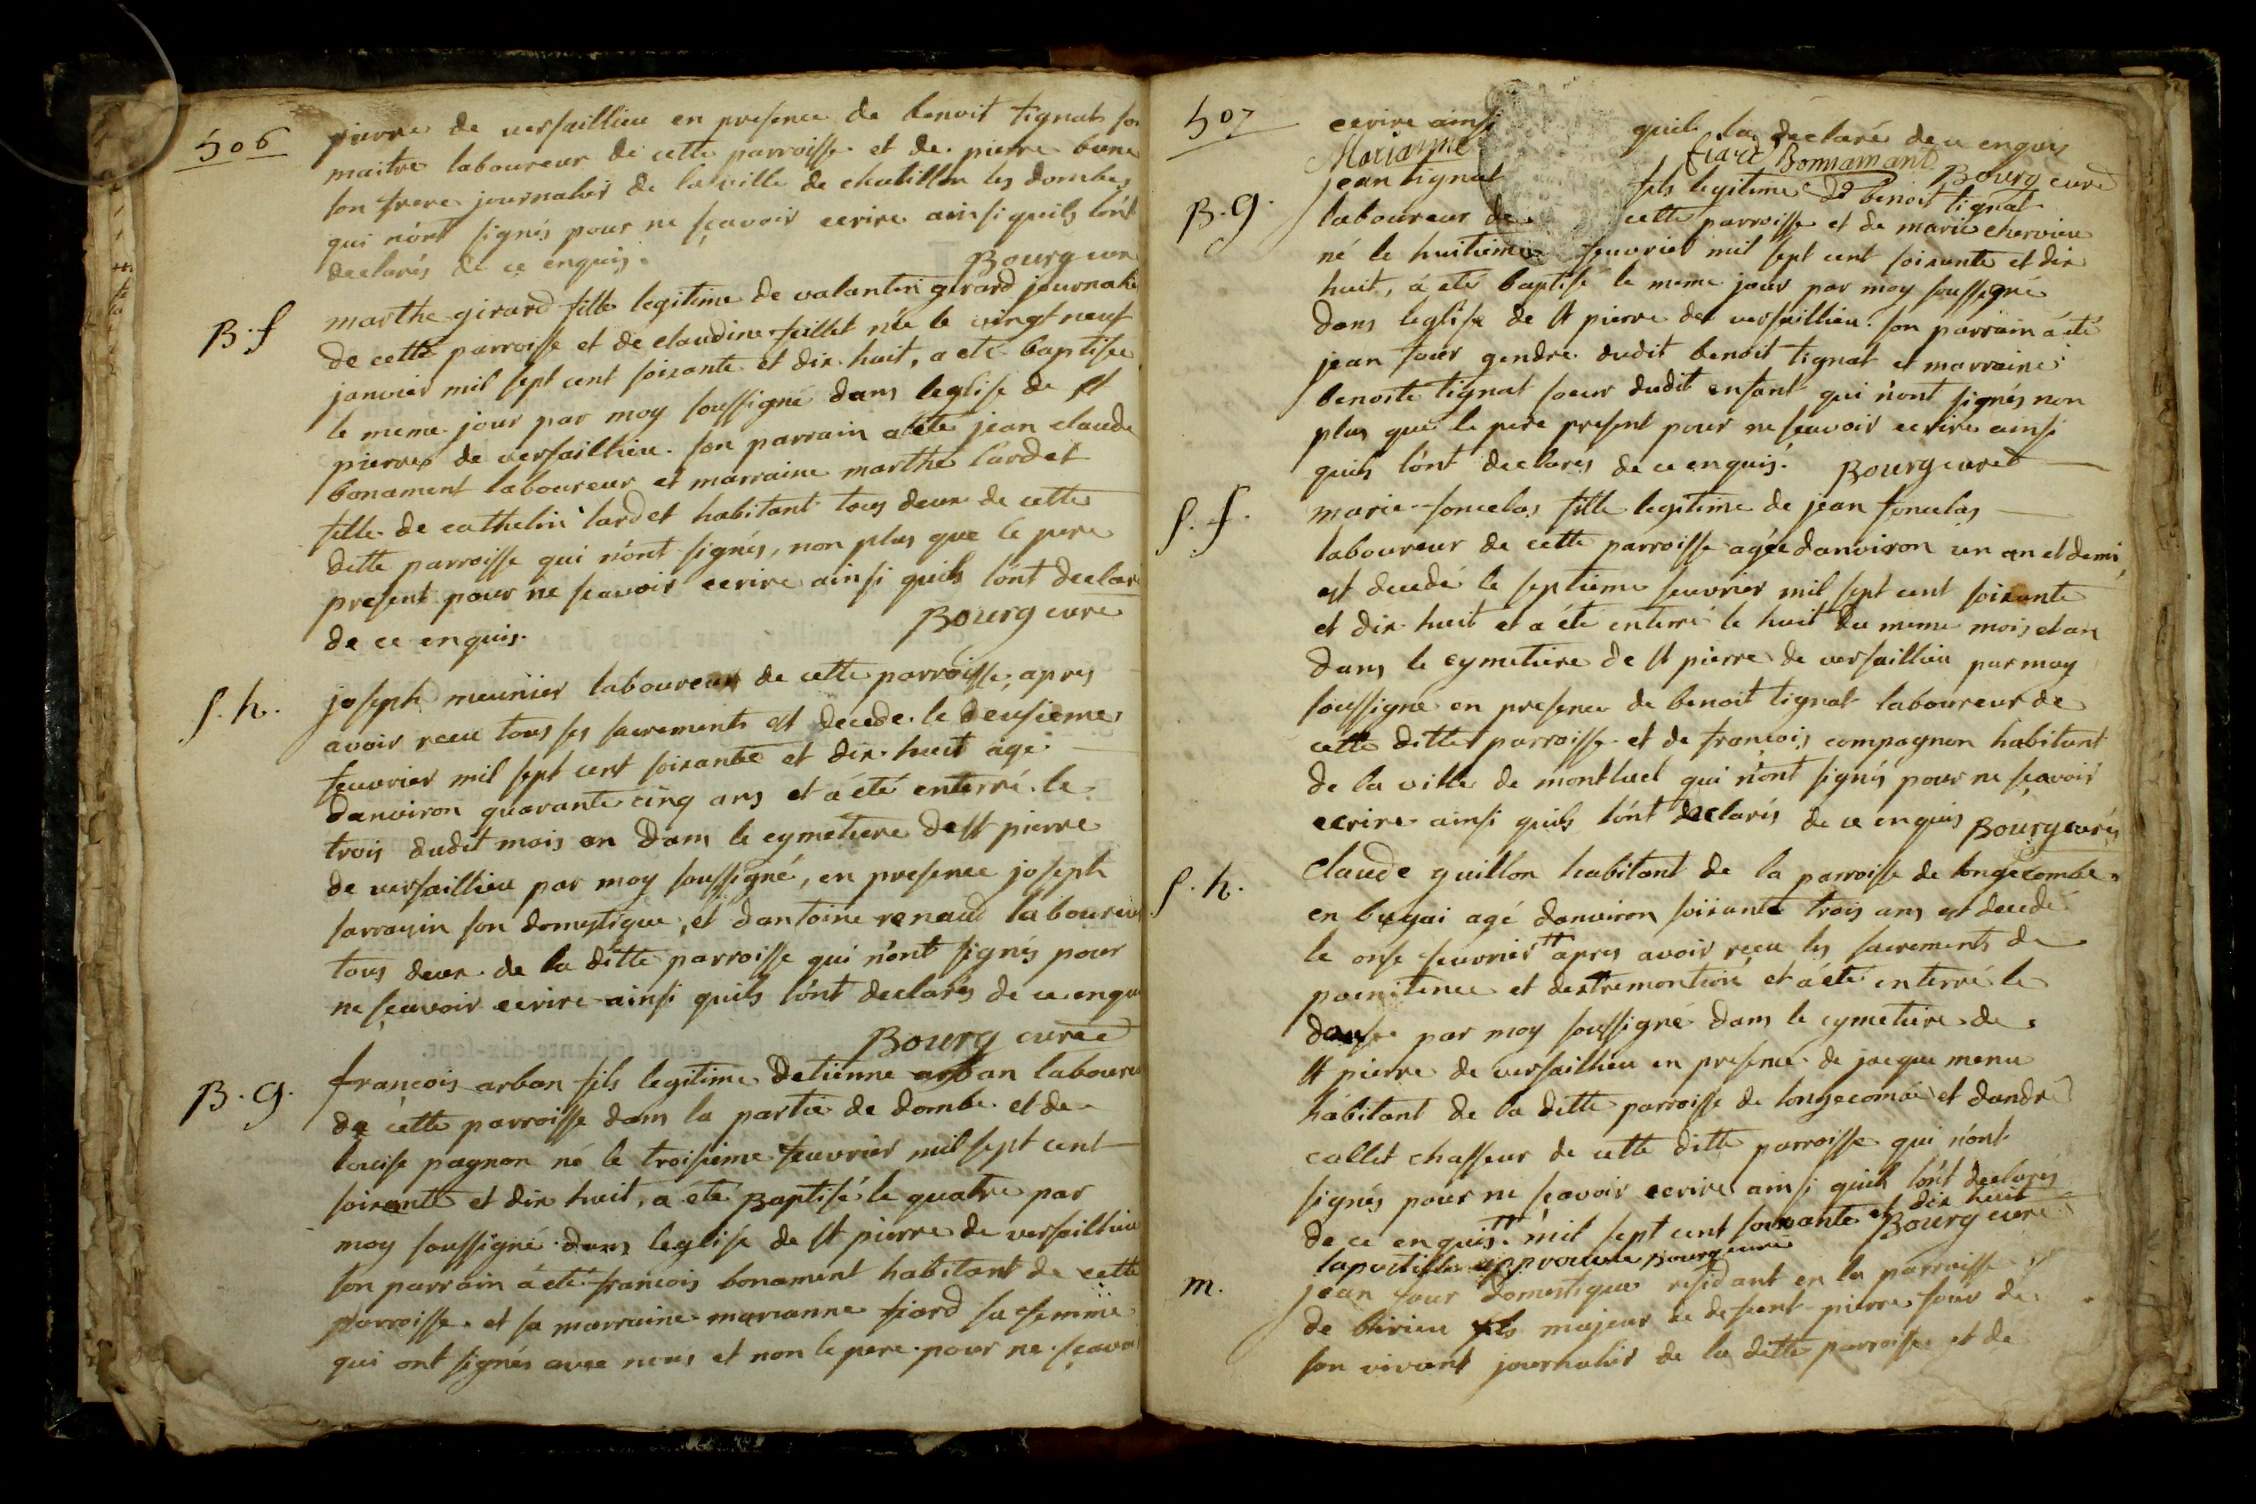 506
pierre de versaillieu en presence de benoit tignat son
maitre laboureur de cette parroisse et de pierre
son frere journalier de la ville de chatillon les dombes
qui n'ont signés pour ne sçavoir ecrire ainsi quils l'ont
declarés de ce enquis.
Bourg cure
B. f
marthe girard fille legitime de valantin girard journalier
de cette parroisse et de claudine feillet née le vingt neuf
janvier mil sept cent soixante et dix huit, a eté baptisée
le meme jour par moy soussigné dans leglise de st
pierre de versaillieu. son parrain a été jean claude
bonament laboureur et marraine marthe lardet
fille de cathelin lardet habitant tous deux de cette
ditte parroisse qui n'ont signés, non plus que le pere
present pour ne scavoir ecrire ainsi quils l'ont declaré
de ce enquis.
Bourg cure
S. h.
joseph meunier laboureur de cette parroisse, apres
avoir receu tous ses sacrements est decede le deusieme
feuvrier mil sept cent soixante et dix huit agé
danviron quarante cinq ans et a été enterré le
trois dudit mois an dans le cymetiere de st pierre
de versaillieu par moy soussigné, en presence joseph
sarrasin son domestique, et dantoine renaud laboureur
tous deux de la ditte parroisse qui n'ont signés pour
ne sçavoir ecrire ainsi quils l'ont declarés de ce enquis
Bourg curé
B. g.
françois arban fils legitime detienne arban laboureur
de cette parroisse dans la partie de dombe et de
louise pagnon né le troisieme feuvrier mil sept cent
soixante et dix huit, a été Baptisé le quatre par
moy soussigné dans leglise de st pierre de versaillieu
son parrain a été françois bonament habitant de cette
parroisse et sa marraine marianne fiard sa femme
qui ont signés avec nous et non le pere pour ne sçavoir
507
ecrire ainsi quil la declaré de ce enquis
Marianne fiard Bonnamant Bourg curé
B. g.
jean tignat fils legitime de benoit tignat
laboureur de cette parroisse et de marie chervieu
né le huitieme feuvrier mil sept cent soixante et dix
huit, a eté baptisé le meme jour par moy soussigne
dans leglise de st pierre de versaillieu. son parrain a été
jean four gendre dudit benoit tignat et marraine
benoite tignat soeur dudit enfant qui n'ont signés non
plus que le pere present pour ne scavoir ecrire ainsi
quils l'ont declarés de ce enquis. Bourg curé
S. f.
marie foncelas fille legitime de jean foncelas
laboureur de cette parroisse agée danviron un an et demi
est decedé le septieme feuvrier mil sept cent soixante
et dix huit et a été enterré le huit du meme mois et an
dans le cymetiere de st pierre de versaillieu par moy
soussigné en presence de benoit tignat laboureur de
cette ditte parroisse et de françois compagnon habitant
de la ville de montluel qui n'ont signés pour ne sçavoir
ecrire ainsi quils l'ont declarés de ce enquis Bourg curé
S. h.
Claude guillon habitant de la parroisse de longecombe
en bugai agé danviron soixante trois ans est decedé
le onse feuvrier ++ apres avoir reçu les sacrements de
poenitence et dextremontion et a été enterré le
douse par moy soussigné dans le cymetiere de
st pierre de versaillieu en presence de jacque menu
habitant de la ditte parroisse de longecombe et dandré
collet chasseur de cette ditte parroisse qui n'ont
signés pour ne sçavoir ecrire ainsi quils l'ont declarés
de ce enquis. ++ mil sept cent soixante et dix huit
lapostille approuvée Bourg curé Bourg curé
m.
jean four domestique residant en la parroisse
de birieu fils majeur de defeunt pierre four de
son vivant journalier de la ditte parroisse et de